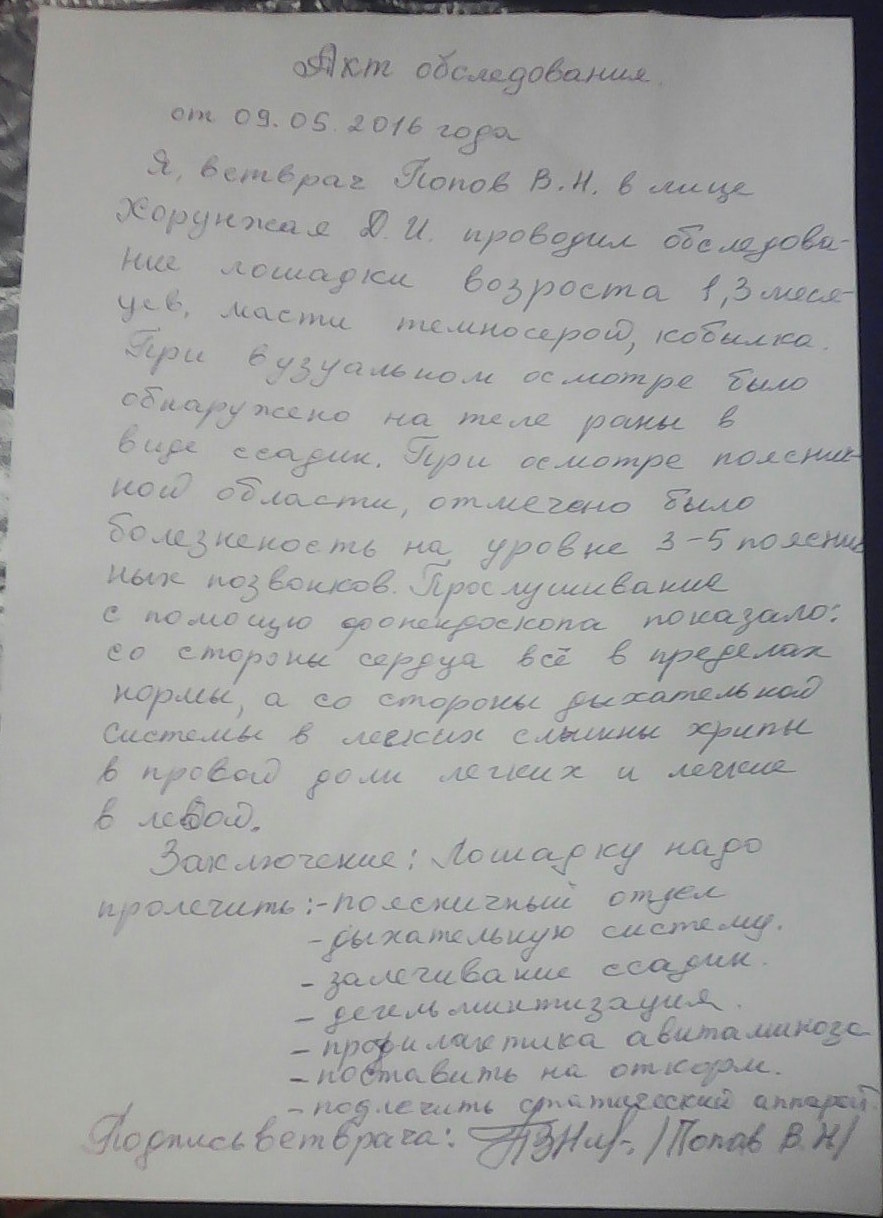 Акт обследования
от 09.05.2016 года
Я, ветврач Попов В.Н. в лице
Хорунжая Д.И. проводил обследова-
ние лошадки возроста 1,3 меся-
цев, масти темносерой, кобылка.
При вузуальном осмотре было
обнаружено на теле раны в
виде ссадин. При осмотре пояснич-
ной области, отмечено было
болезненость на уровне 3-5 поясни
ных позвонков. Прослушивание
с помощю фонендоскопа показало:
со стороны сердца всё в пределах
нормы, а со стороны дыхательной
системы в легких слышны хрипы
в провой доли легких и легкие
в левой.
Заключение: Лошадку надо
пролечить:-поясничный отдел
-дыхательную систему.
-залечивание ссадин.
-дегельминтизация.
-профилактика авитаминоза
-поставить на откорм.
-подлечить статический аппарат.
Подпись ветврача: /Попов В.Н/